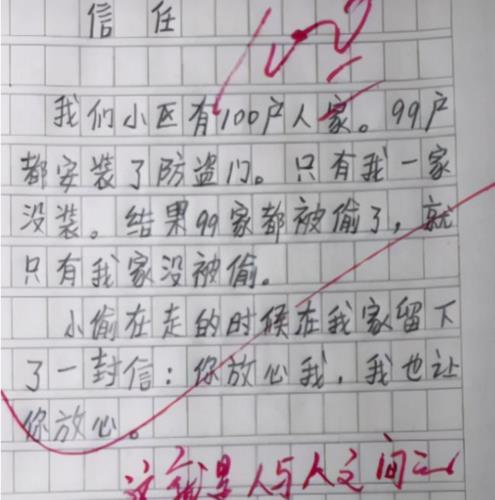 信任
我们小区有100户人家。99户
都安装了防盗门。只有我一家
没装。结果99家都被偷了，就
只有我家没被偷。
小偷在走的时候在我家留下
了一封信：你放心我，我也让
你放心。
人与人之间